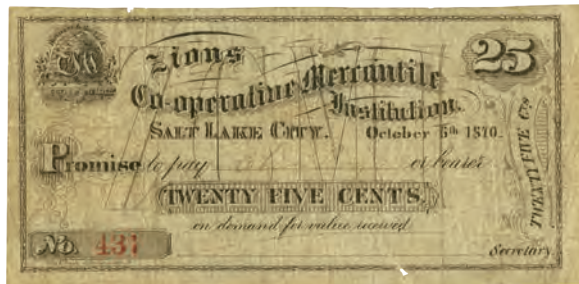 Zions
Co-operative Mercantile
Institution.
25
SALT LAKE CITY. October 5th 1870.
Promise to pay or bearer
TWENTY FIVE CENTS.
on demand for value received
No. 431
Secretary
TWENTY FIVE Cts